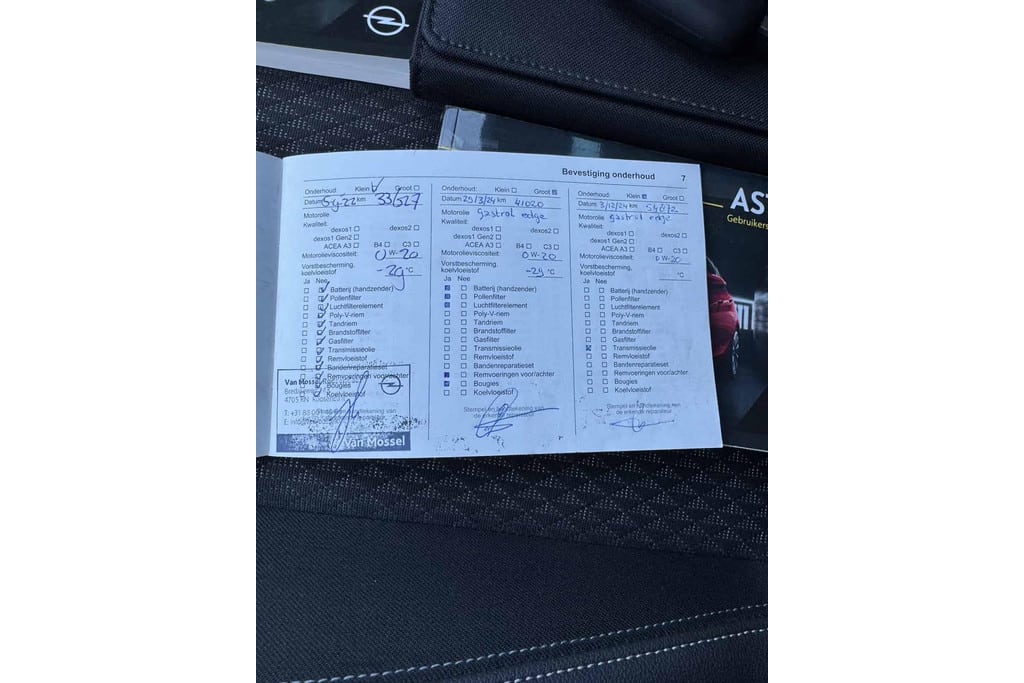 Bevestiging onderhoud 7
Onderhoud: Klein Groot
Datum km
Motorolie
Kwaliteit:
dexos1 dexos2
dexos1 Gen2
ACEA A3 B4 C3
Motorolieviscositeit: 0 W-20
Vorstbescherming,
koelvloeistof -29 °C
Ja Nee
Batterij (handzender)
Pollenfilter
Luchtfilterelement
Poly-V-riem
Tandriem
Brandstoffilter
Gasfilter
Transmissieolie
Remvloeistof
Bandenreparatieset
Remvoeringen voor/achter
Bougies
Koelvloeistof
Van Mossel
4705 RN
Van Mossel
Onderhoud: Klein Groot
Datum 25/3/24 km 41020
Motorolie gastrol edge
Kwaliteit:
dexos1 dexos2
dexos1 Gen2
ACEA A3 B4 C3
Motorolieviscositeit: 0 W-20
Vorstbescherming,
koelvloeistof -29 °C
Ja Nee
Batterij (handzender)
Pollenfilter
Luchtfilterelement
Poly-V-riem
Tandriem
Brandstoffilter
Gasfilter
Transmissieolie
Remvloeistof
Bandenreparatieset
Remvoeringen voor/achter
Bougies
Koelvloeistof
Stempel en handtekening van
de erkende reparateur
Onderhoud: Klein Groot
Datum 3/12/24 km
Motorolie gastrol edge
Kwaliteit:
dexos1 dexos2
dexos1 Gen2
ACEA A3 B4 C3
Motorolieviscositeit: 0 W-20
Vorstbescherming,
koelvloeistof °C
Ja Nee
Batterij (handzender)
Pollenfilter
Luchtfilterelement
Poly-V-riem
Tandriem
Brandstoffilter
Gasfilter
Transmissieolie
Remvloeistof
Bandenreparatieset
Remvoeringen voor/achter
Bougies
Koelvloeistof
Stempel en handtekening van
de erkende reparateur
AST
Gebruikers